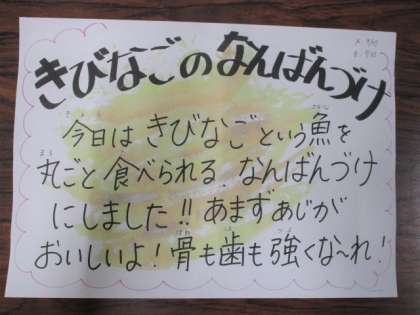 きびなごのなんばんづけ
今日は きびなごという魚を
丸ごと 食べられる なんばんづけ
にしました!! あまずあじが
おいしいよ! 骨も歯も 強くな〜れ!